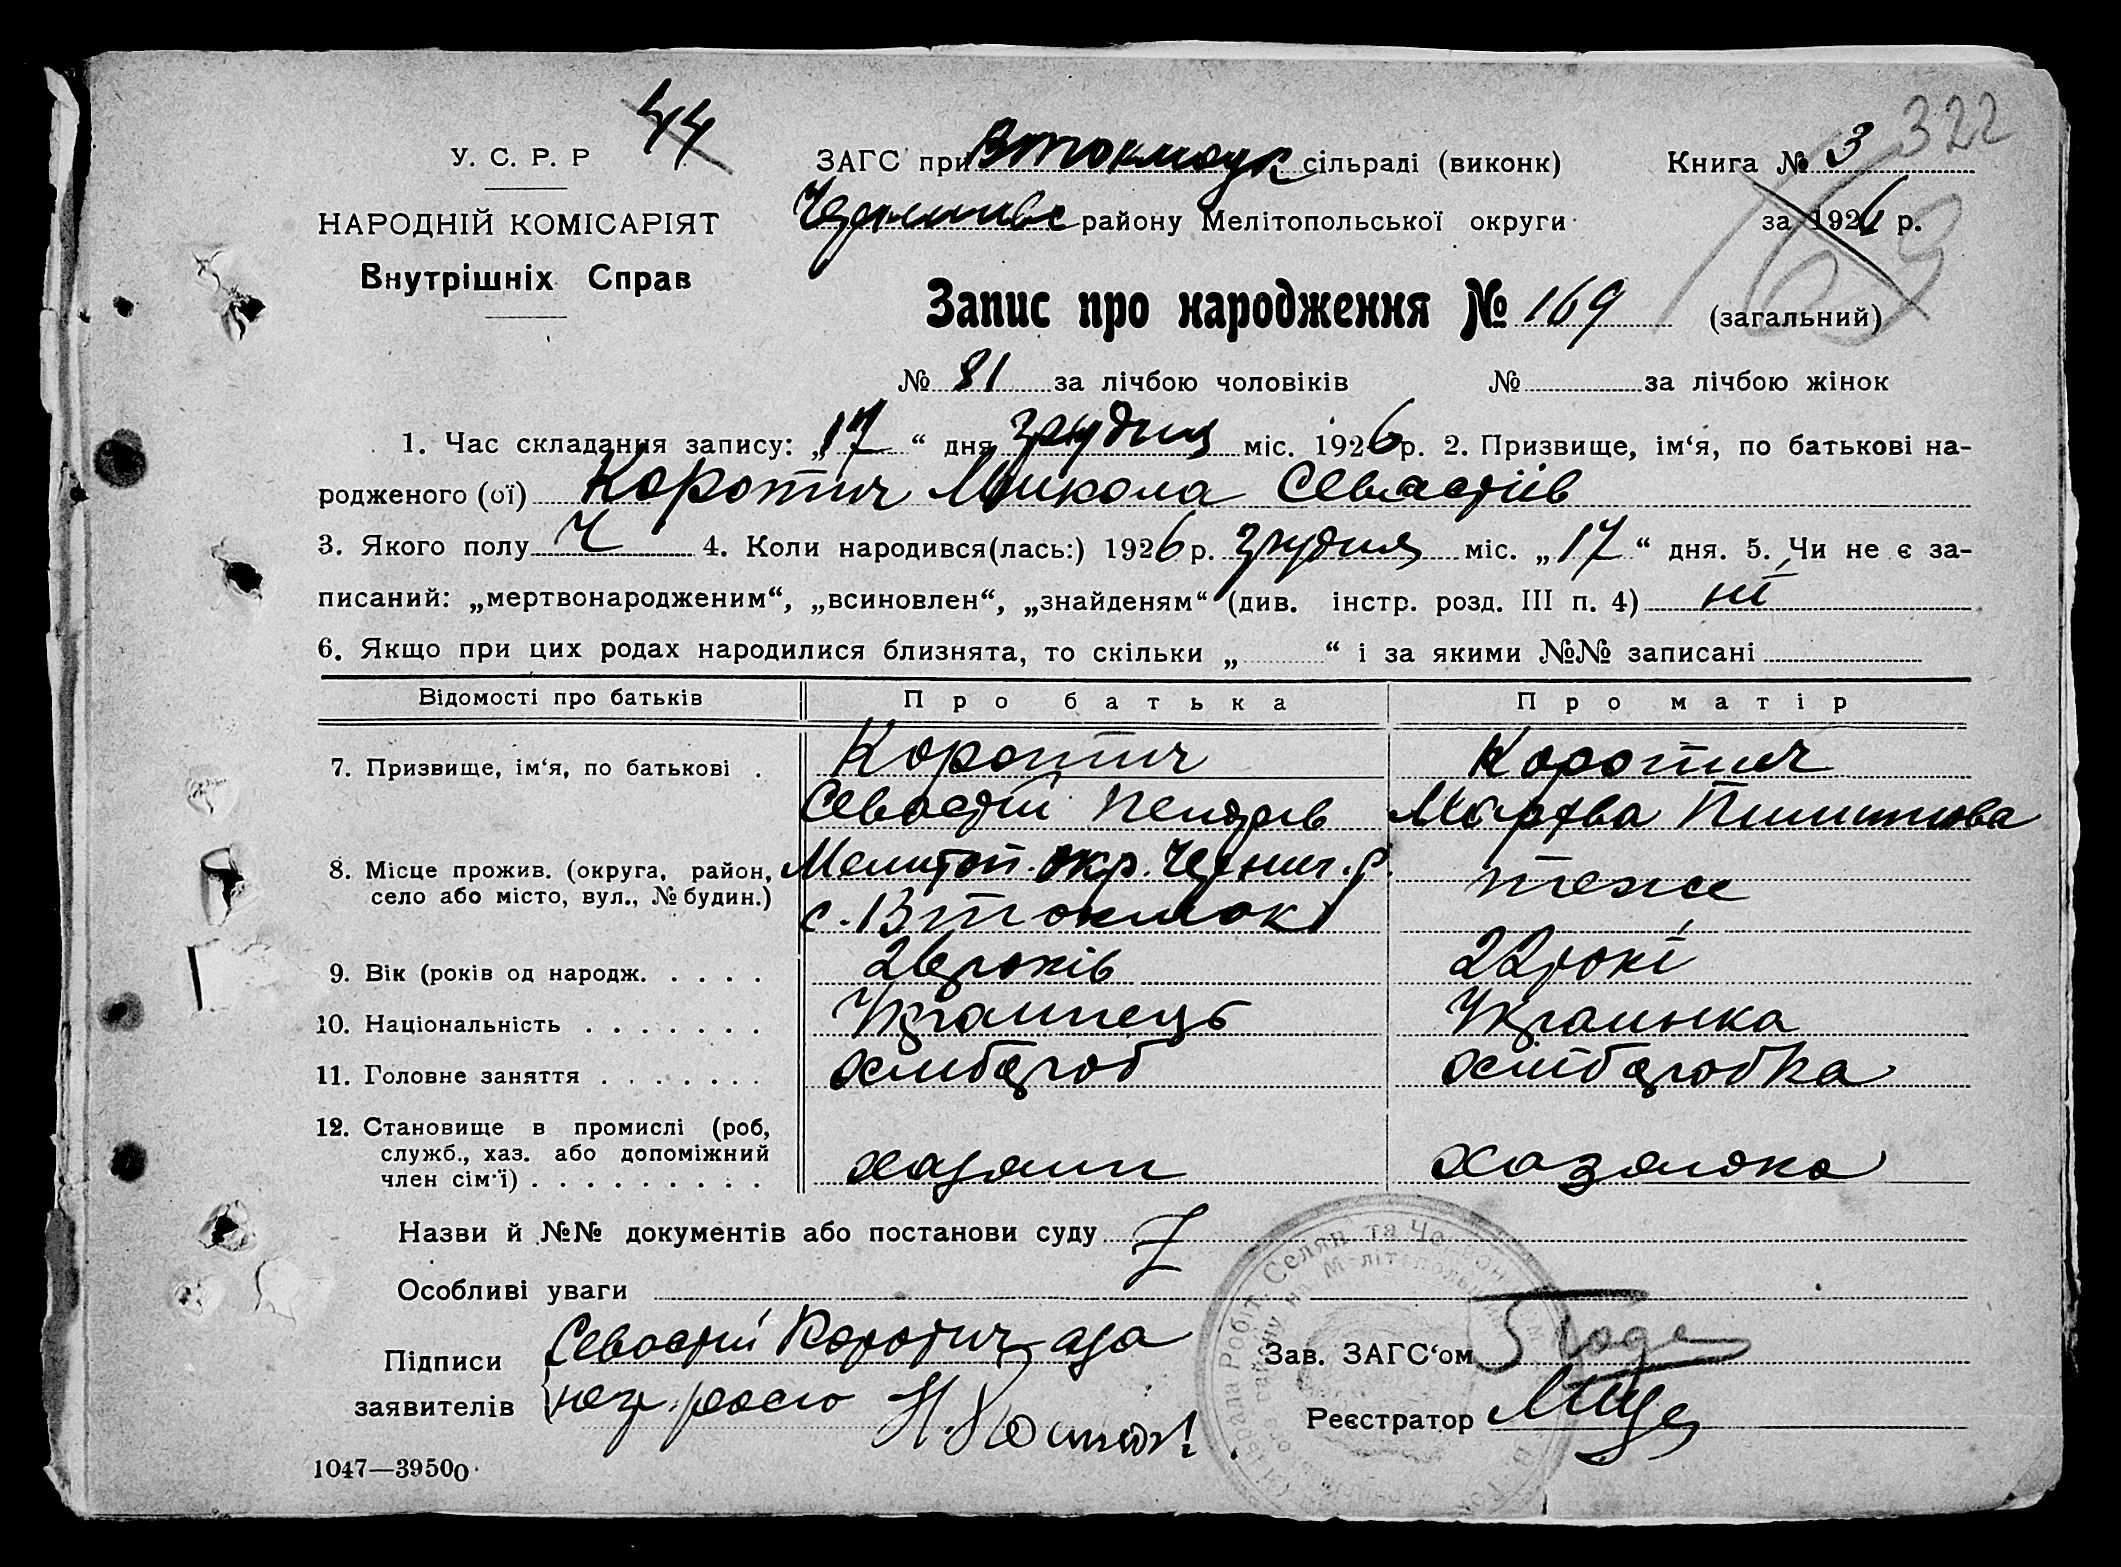 44
322
У. С. Р. Р
ЗАГС при Втокмаук сільраді (виконк)
Книга № 3
НАРОДНІЙ КОМІСАРІЯТ
району Мелітопольської округи
за 1926 р.
169
Внутрішніх Справ
Запис про народження № 169 (загальний)
№ 81 за лічбою чоловіків № за лічбою жінок
1. Час складання запису: „17“ дня грудня міс. 1926 р. 2. Призвище, ім‘я, по батькові на-
родженого (ої) Коротич Микола Севастіів
3. Якого полу Ч 4. Коли народився(лась:) 1926 р. грудня міс. „17“ дня. 5. Чи не є за-
писаний: „мертвонародженим“, „всиновлен“, „знайденям“ (див. інстр. розд. III п. 4) ні
6. Якщо при цих родах народилися близнята, то скільки „ “ і за якими №№ записані
Відомості про батьків Про батька Про матір
7. Призвище, ім‘я, по батькові . Коротич Коротич
Севастій Марфа
8. Місце прожив. (округа, район, Мелитоп. окр. Черниг. р. теж
село або місто, вул., № будин.) с. Втокмак
9. Вік (років од народж. . . . . 26 років 22 рокі
10. Національність . . . . . . . Украинець Украинка
11. Головне заняття . . . . . . . хлибороб хлиборобка
12. Становище в промислі (роб,
служб., хаз. або допоміжний
член сім‘ї) . . . . . . . . . хазяин хазяйка
Назви й №№ документів або постанови суду
Особливі уваги
Підписи Севастій Коротич
Зав. ЗАГС‘ом
заявителів
Реєстратор
1047—39500